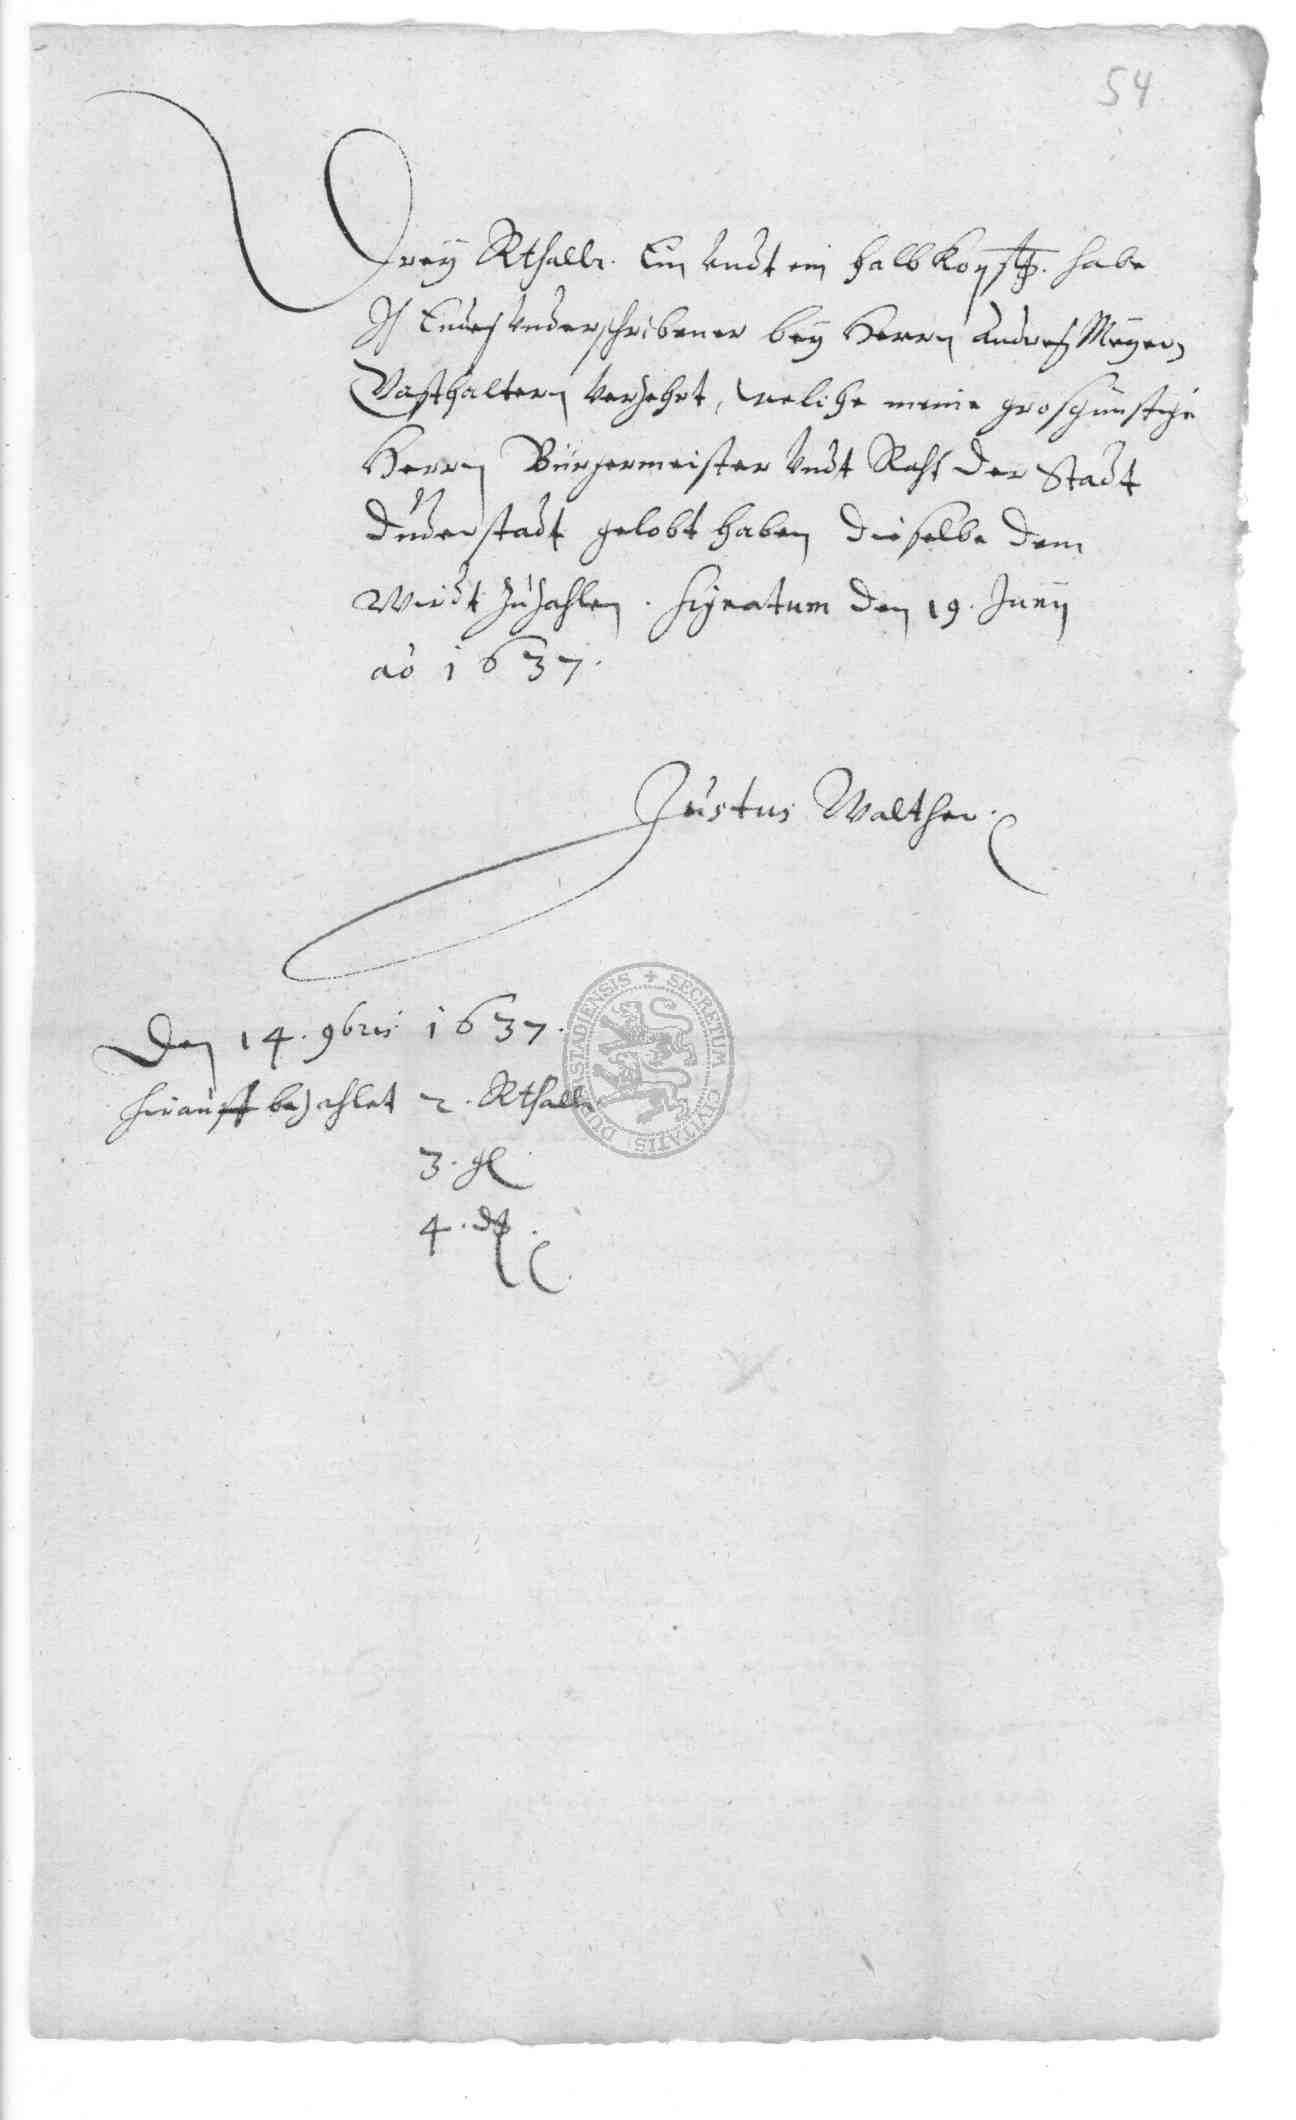 54
Drey Rthallr. Ein undt ein halb Kopst. habe
Ich Endes Underschribener bey Herrn Andres Meyern
Gasthaltern verzehrt, welche meine grosgünstige
Herrn Bürgermeister undt Raht der Stadt
Duderstadt gelobt haben dieselbe dem
Wirdt zuzahlen. Signatum den 19. Junij
ao 1637.
Justus Walther
Den 14. 9bris 1637.
hirauff bezahlet 2. Rthallr
3. gl
4. d
SECRETUM CIVITATIS DUDERSTADIENSIS